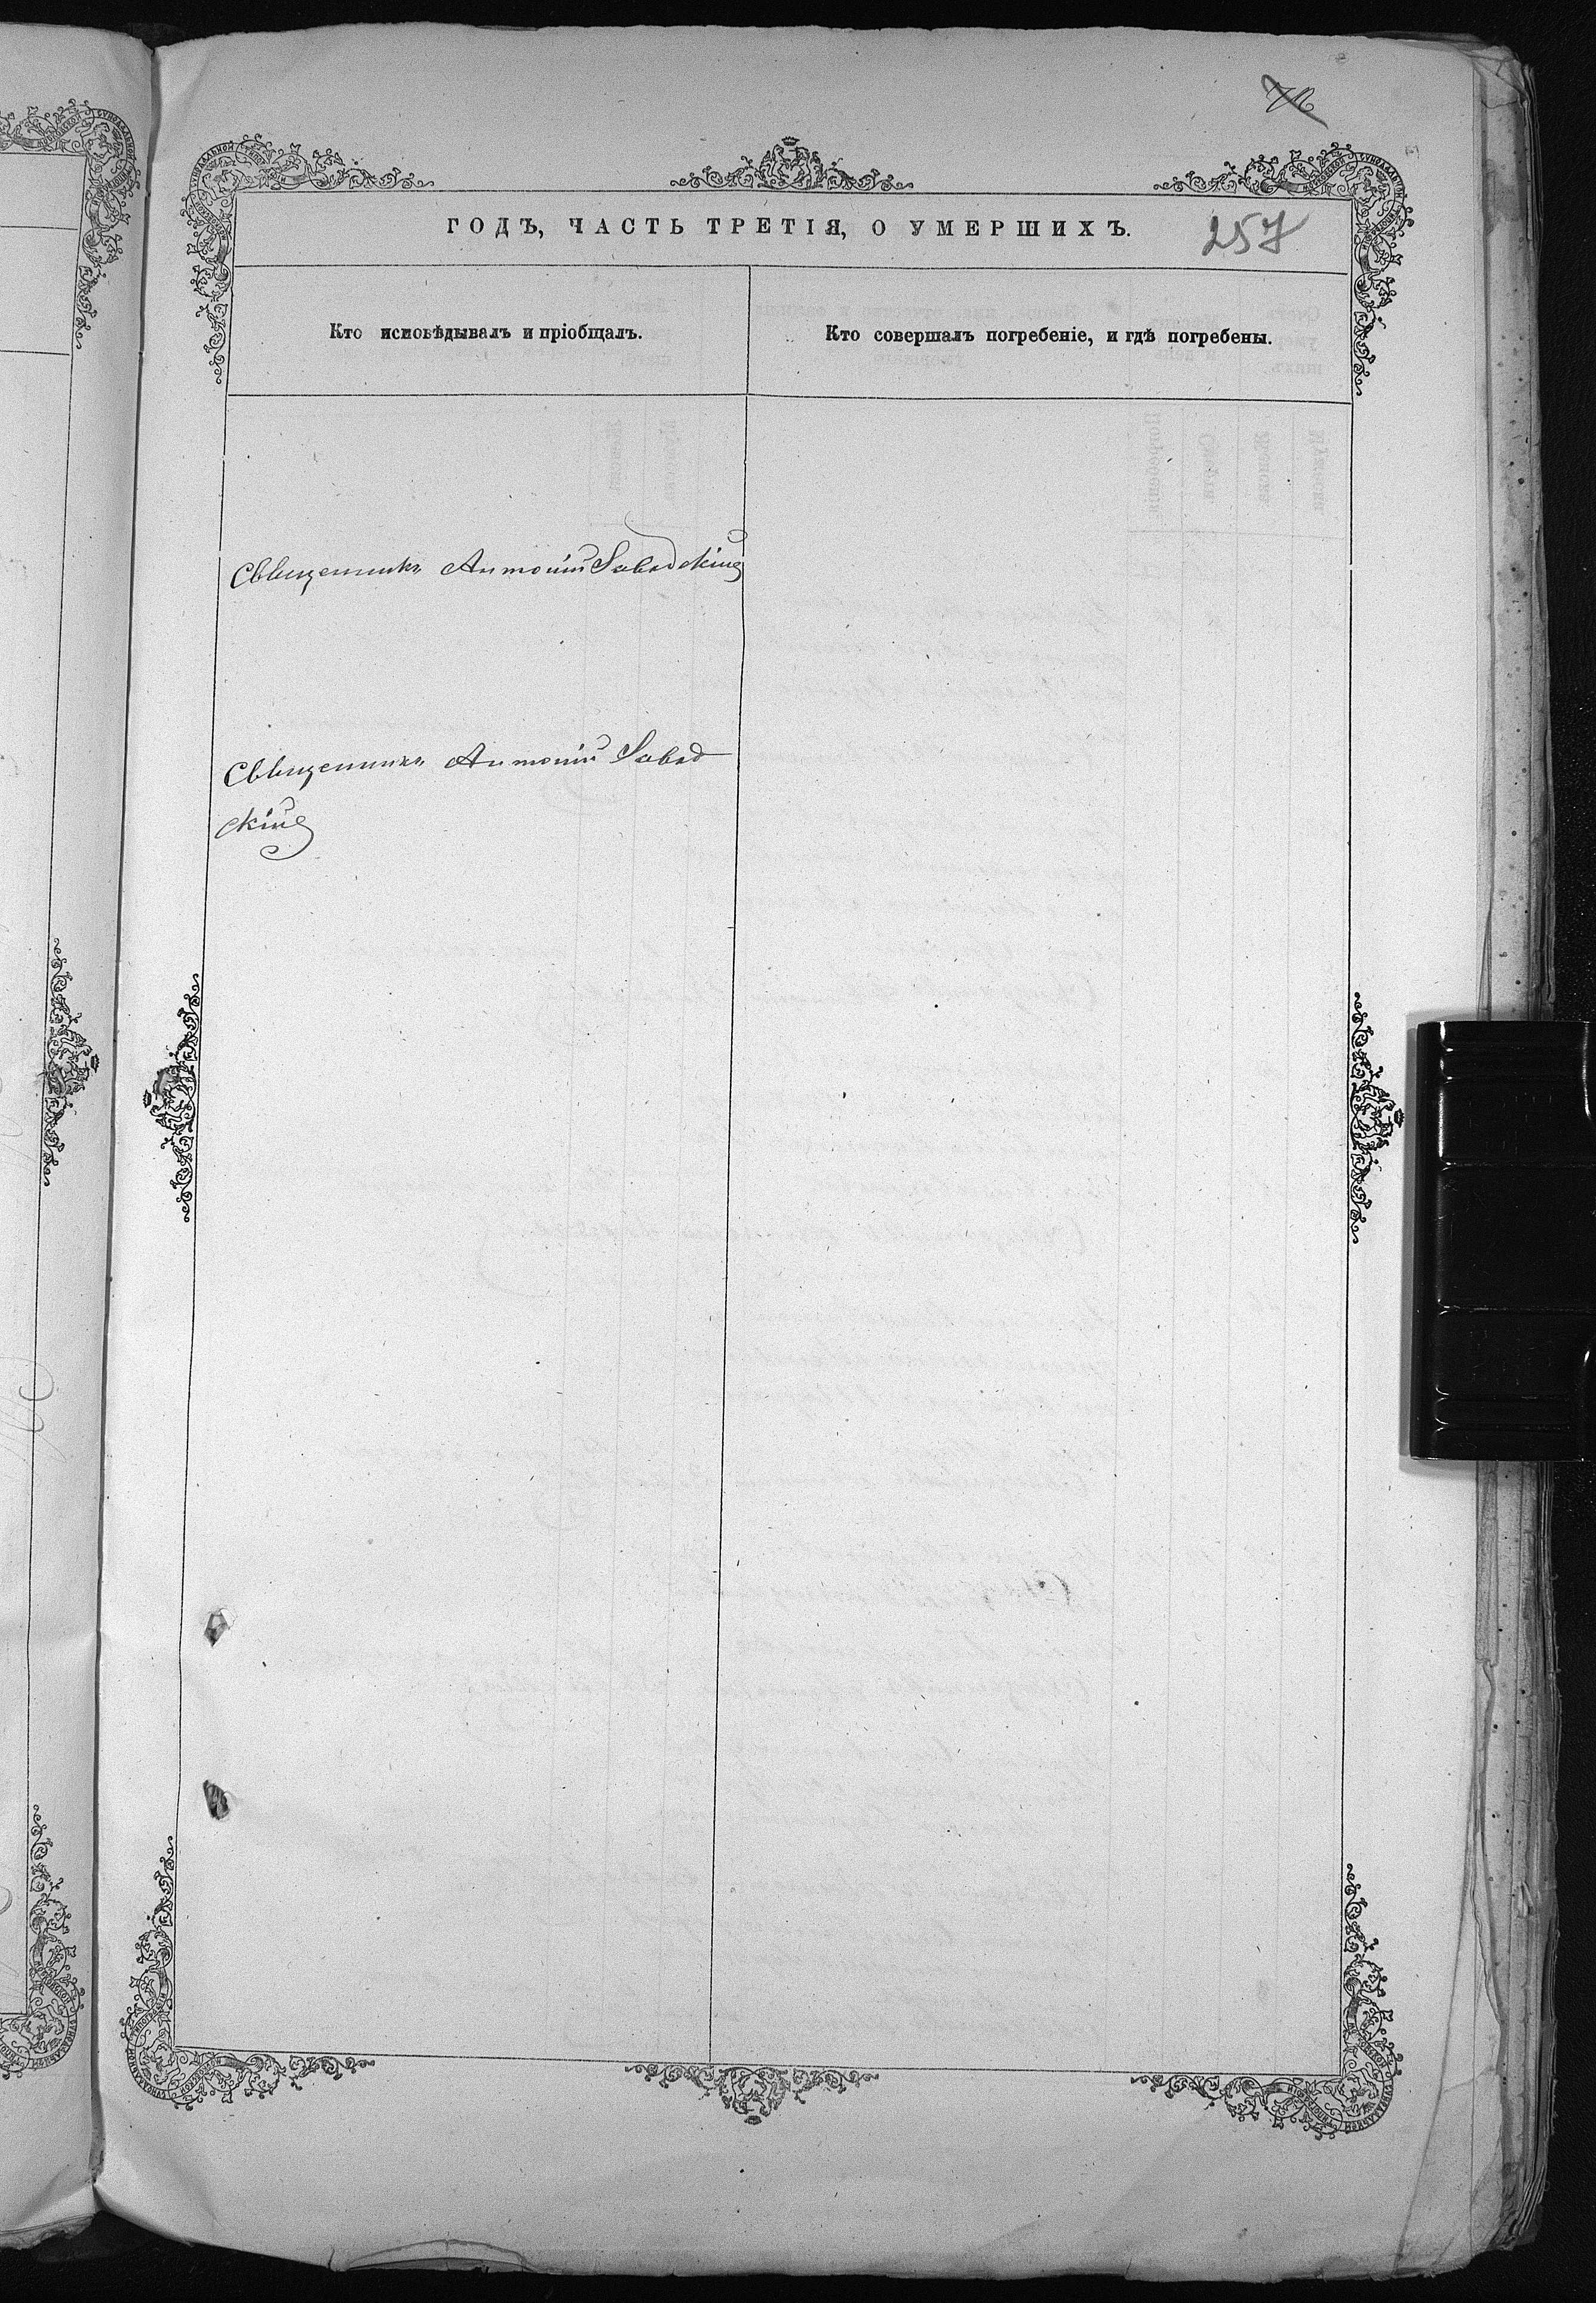 ГОДЪ, ЧАСТЬ ТРЕТІЯ, О УМЕРШИХЪ.
257
Кто исповѣдывалъ и пріобщалъ.
Кто совершалъ погребеніе, и гдѣ погребены.
Священникъ Антоній Завадскій
Священникъ Антоній Завад
скій